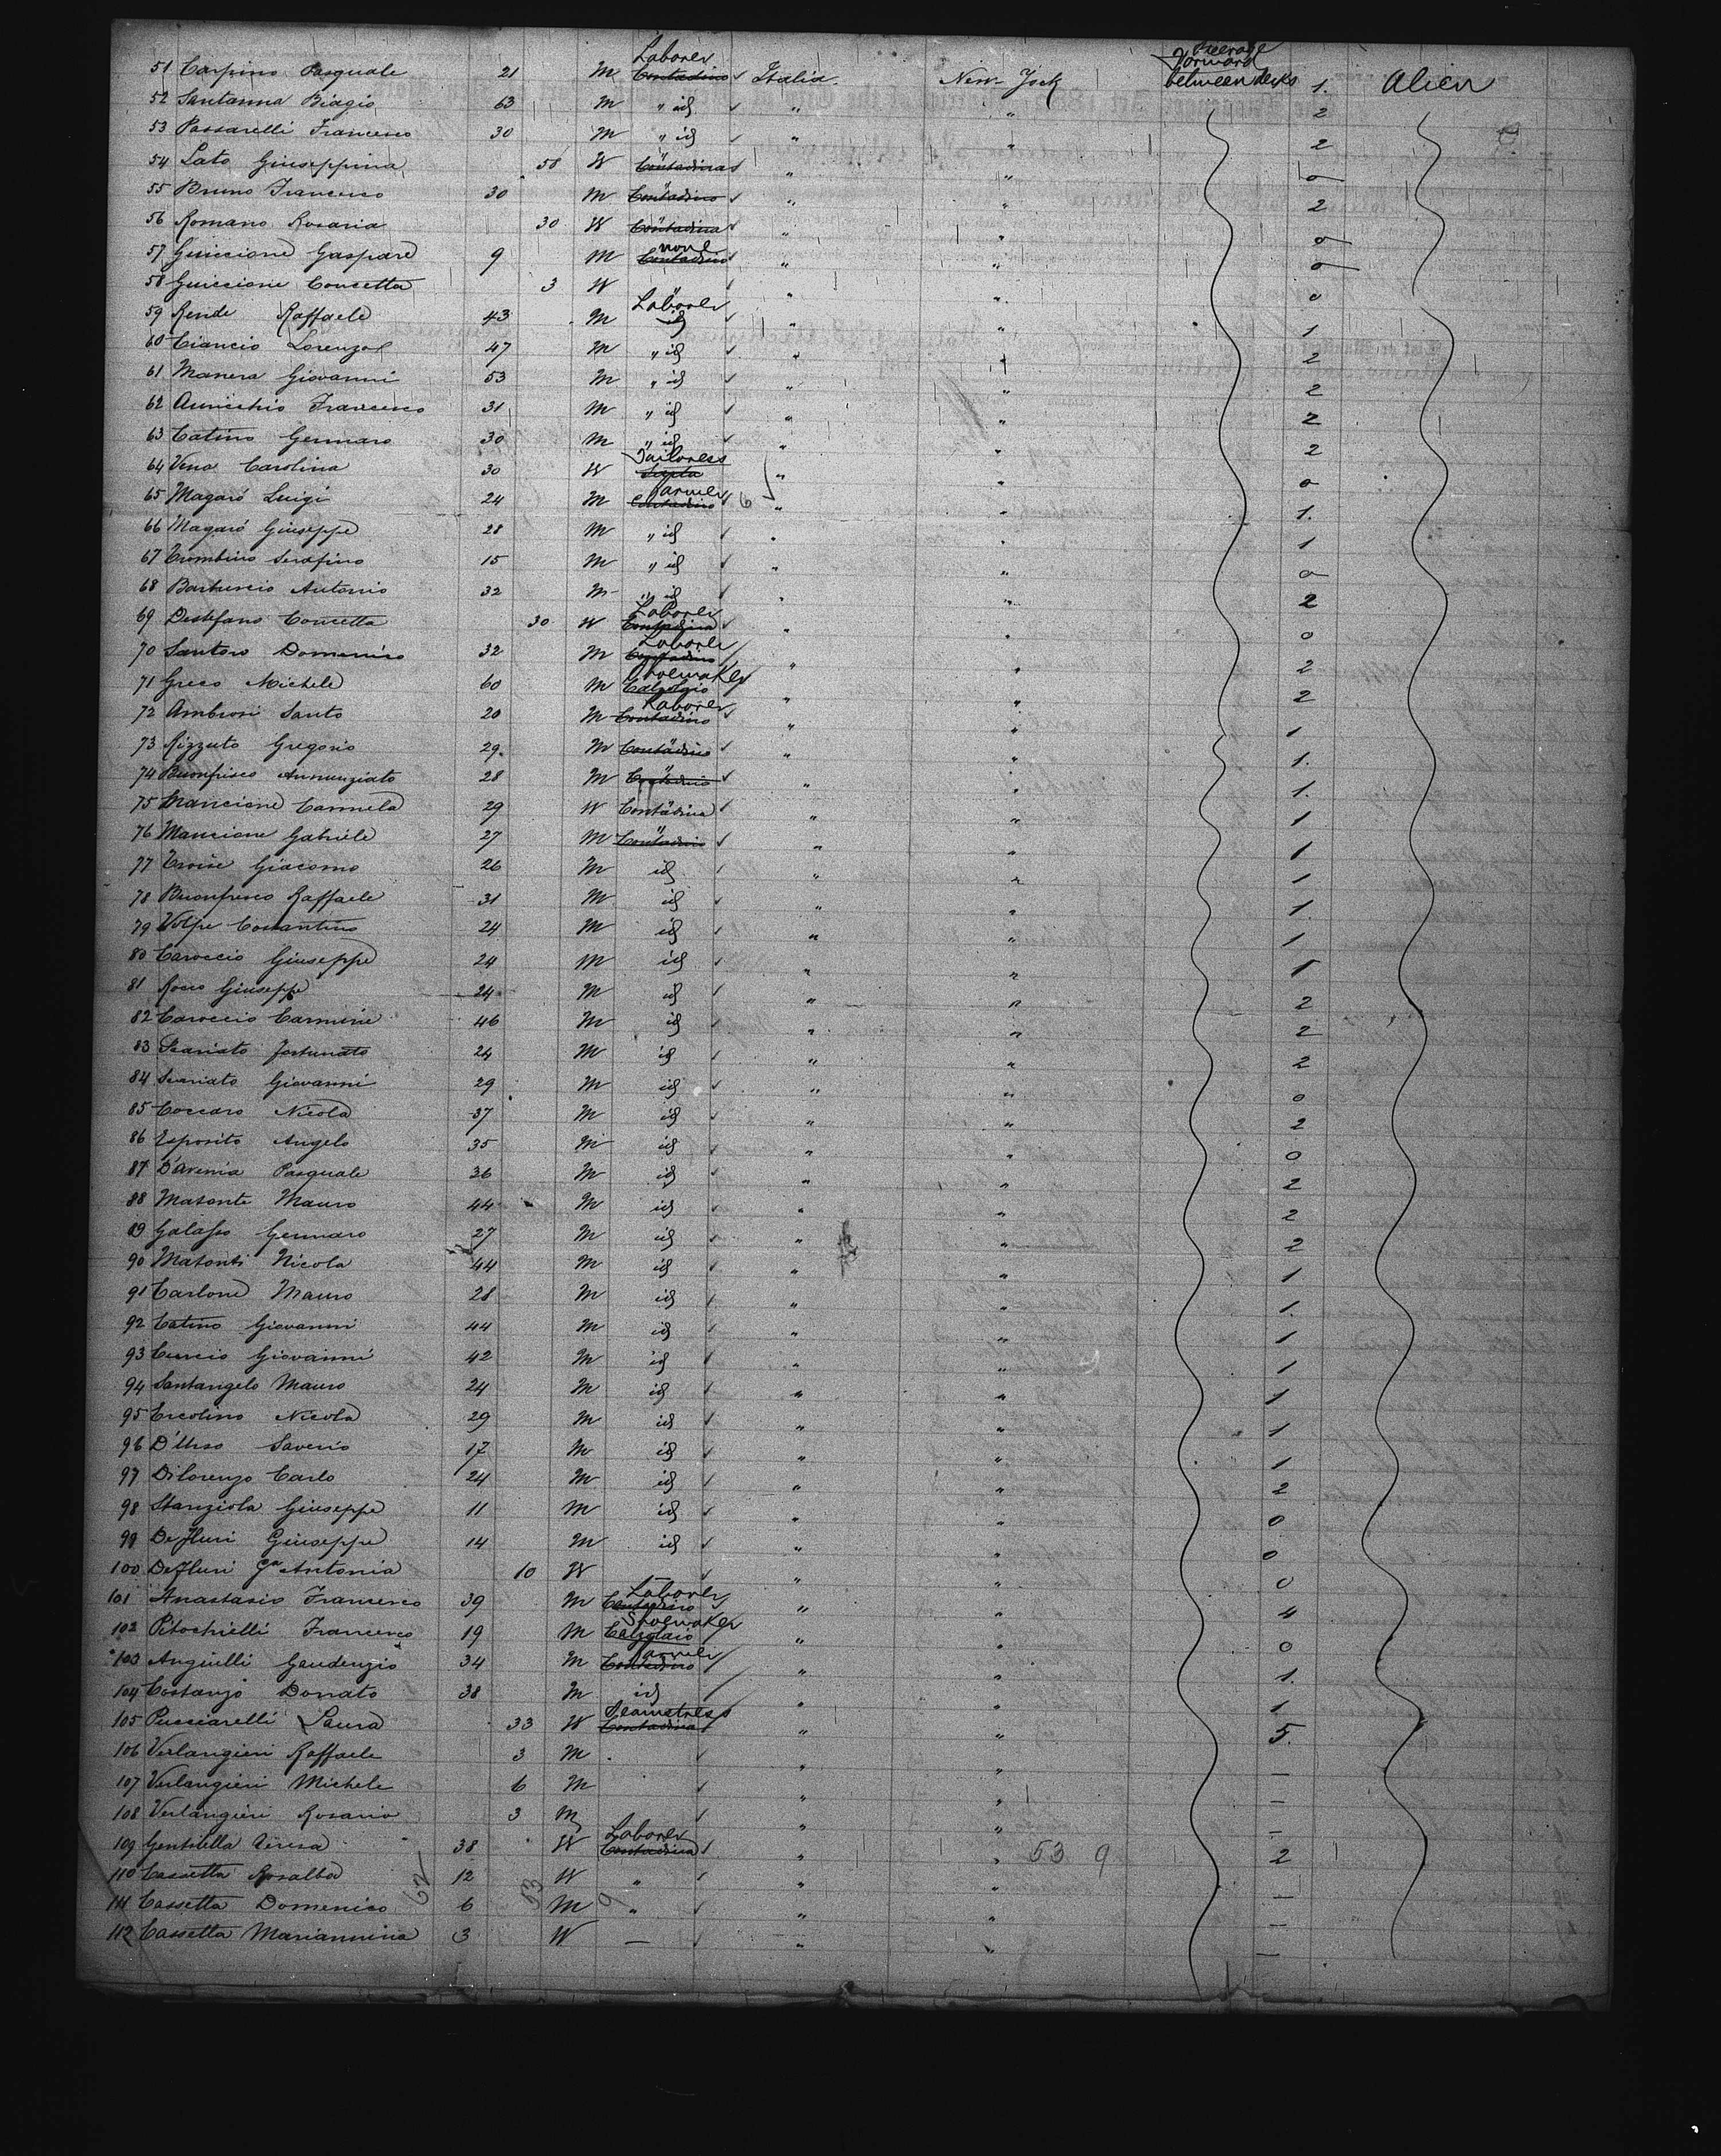 Steerage
Laborer Forward
51 Carpino Pasquale 21 M Contadino ✓ Italia New-Jork between decks 1. Alien
52 Santanna Biagio 63 M " id ✓ " " 2
53 Passarelli Francesco 30 M " id ✓ " " 2
54 Lato Giuseppina 58 W Contadina ✓ " " 0
55 Bruno Francesco 30 M Contadino ✓ " " 2
56 Romano Rosaria 30 W Contadina ✓ " " 0
none
57 Guiccione Gaspare 9 M Contadino ✓ " " 0
58 Guiccione Concetta 3 W " ✓ " " 0
Laborer
59 Rende Raffaele 43 M id ✓ " " 1
60 Ciancio Lorenzo 47 M " id ✓ " " 2
61 Manera Giovanni 53 M " id ✓ " " 2
62 Auricchio Francesco 31 M " id ✓ " " 2
63 Catino Gennaro 30 M " id ✓ " " 2
Tailoress
64 Vena Carolina 30 W Sarta " " 0
Farmer
65 Magaró Luigi 24 M Contadino ✓ 6 " " 1.
66 Magaró Giuseppe 28 M " id ✓ " " 1
67 Trombino Serafino 15 M " id ✓ " " 0
68 Barbuscio Antonio 32 M " id ✓ " " 2
Laborer
69 Destefano Concetta 30 W Contadina ✓ " " 0
Laborer
70 Santoro Domenico 32 M Contadino ✓ " " 2
Shoemaker
71 Greco Michele 60 M Calzolaio " " 2
Laborer
72 Ambrosi Santo 20 M Contadino ✓ " " 1
73 Rizzuto Gregorio 29. M Contadino ✓ " " 1.
74 Buonfrisco Annunziato 28 M Contadino ✓ " " 1.
75 Mancione Carmela 29 W Contadina ✓ " " 1
76 Mancione Gabriele 27 M Contadino ✓ " " 1
77 Troise Giacomo 26 M id ✓ " " 1
78 Buonfrisco Raffaele 31 M id ✓ " " 1.
79 Volpe Costantino 24 M id ✓ " " 1
80 Caroccio Giuseppe 24 M id ✓ " " 1
81 Rocco Giuseppe 24 M id ✓ " " 2
82 Caroccio Carmine 46 M id ✓ " " 2
83 Scariato Fortunato 24 M id ✓ " " 2
84 Scariato Giovanni 29 M id ✓ " " 0
85 Coccaro Nicola 37 M id ✓ " " 2
86 Esposito Angelo 35 M id ✓ " " 0
87 D'Avenia Pasquale 36 M id ✓ " " 2
88 Matonte Mauro 44 M id ✓ " " 2
89 Galasso Gennaro 27 M id ✓ " " 2
90 Matonti Nicola 44 M id ✓ " " 1
91 Carlone Mauro 28 M id ✓ " " 1.
92 Catino Giovanni 44 M id ✓ " " 1
93 Curcio Giovanni 42 M id ✓ " " 1
94 Santangelo Mauro 24 M id ✓ " " 1
95 Ercolino Nicola 29 M id ✓ " " 1
96 D'Urso Saverio 17 M id ✓ " " 1
97 Dilorenzo Carlo 24 M id ✓ " " 2
98 Stanziola Giuseppe 11 M id ✓ " " 0
99 DeFluri Giuseppe 14 M id ✓ " " 0
100 DeFluri Antonia 10 W — ✓ " " 0
Laborer
101 Anastasio Francesco 39 M Contadino ✓ " " 4
Shoemaker
102 Pitochielli Francesco 19 M Calzolaio " " 0
Farmer
103 Anguilli Gaudenzio 34 M Contadino ✓ " " 1.
104 Costanzo Donato 38 M id ✓ " " 1
Seamstress
105 Pucciarelli Laura 33 W Contadina ✓ " " 5.
106 Verlangieri Raffaele 3 M ✓ " " —
107 Verlangieri Michele 6 M ✓ " " —
108 Verlangieri Rosario 3 M ✓ " " —
Laborer
109 Gentilella Teresa 38 W Contadina ✓ " " 53 9 2
110 Cassetta Rosalba 12 W " ✓ " "
111 Cassetta Domenico 62 6 53 M " 9 ✓ " " —
112 Cassetta Mariannina 3 W — ✓ " " —